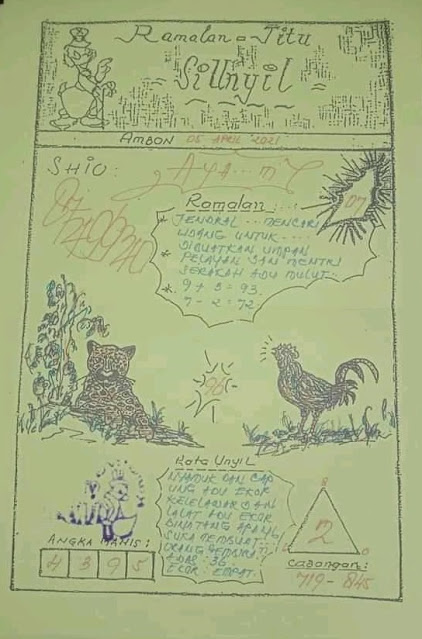 Ramalan = Jitu
SiUnyil
AMBON 05 APRIL 2021
SHIO: AYA...M
07
Ramalan
* JENDRAL ... MENCARI
UDANG UNTUK
DIBUATKAN UMPAN
* PELAYAN DAN MENTRI
SERAKAH ADU MULUT
* 9 + 3 = 93.
7 - 2 = 72
96
Kata Unyil
NYAMUK DAN CAP
UNG ADU EKOR
KELELAWAR DAN
LALAT ADU EKOR
BINATANG APAANG
SUKA MEMBUAT
ORANG GEMBIRA
ADAS: 36.
EKOR: EMPAT.
ANGKA MANIS:
4 3 9 5
8
2
6
Cabangan:
719 - 845